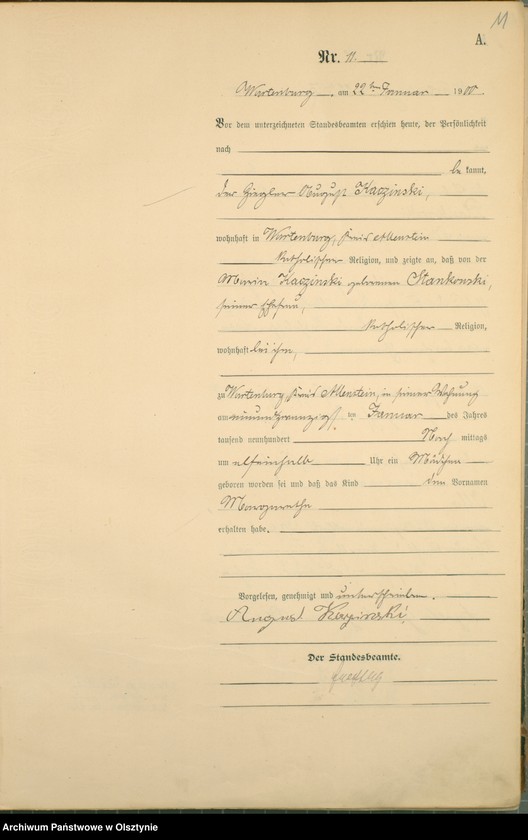 11
A.
Nr. 11.
Wartenburg am 22ten Januar 1900
Vor dem unterzeichneten Standesbeamten erschien heute, der Persönlichkeit
nach
be kannt,
der Ziegler August Kaczinski,
wohnhaft in Wartenburg, Kreis Allenstein
katholischer Religion, und zeigte an, daß von der
Maria Kaczinski geborenen Stankowski,
seiner Ehefrau,
katholischer Religion,
wohnhaft bei ihm,
zu Wartenburg Kreis Allenstein, in seiner Wohnung
am Januar des Jahres
tausend neunhundert Nach mittags
um elfeinhalb Uhr ein Mädchen
geboren worden sei und daß das Kind den Vornamen
Margarethe
erhalten habe.
Vorgelesen, genehmigt und unterschrieben.
August Kaczinski
Der Standesbeamte.
Archiwum Państwowe w Olsztynie